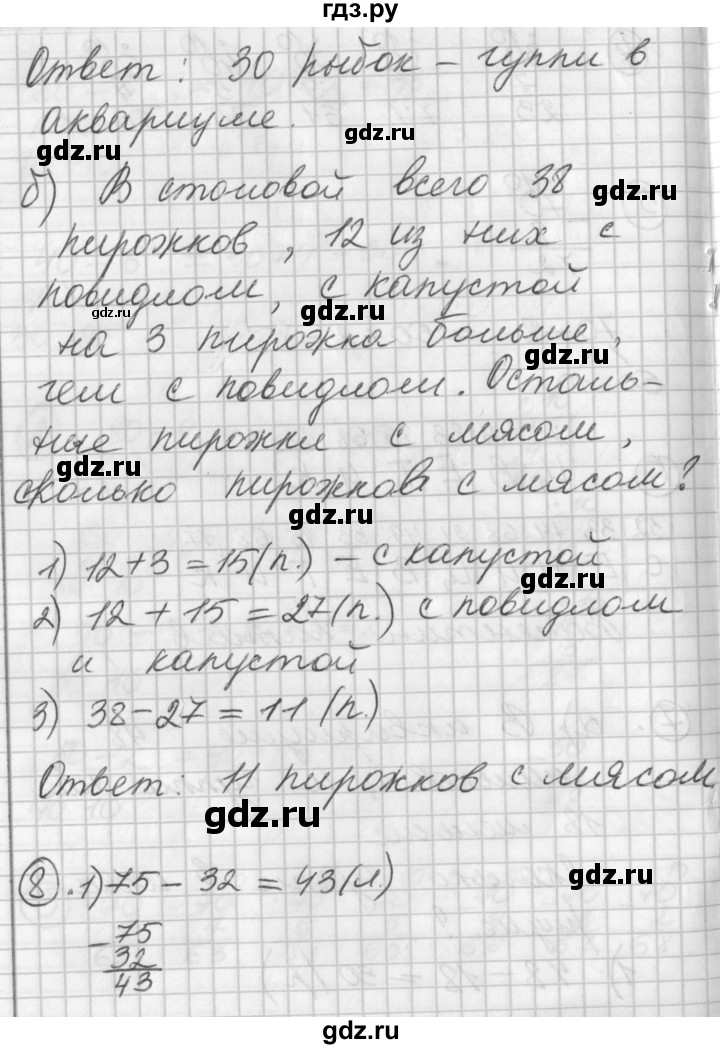 гдз.ру
Ответ: 30 рыбок - гуппи в
аквариуме.
gdz.ru
gdz.ru
б) В столовой всего 38
gdz.ru
пирожков, 12 из них с
gdz.ru
повидлом, с капустой
gdz.ru
gdz.ru
на 3 пирожка больше,
gdz.ru
чем с повидлом. Осталь-
gdz.ru
ные пирожки с мясом,
gdz.ru
сколько пирожков с мясом?
gdz.ru
1) 12+3=15(п.) - с капустой
gdz.ru
2) 12+15=27(п.) с повидлом
и капустой
gdz.ru
3) 38-27=11(п.)
gdz.ru
Ответ: 11 пирожков с мясом
gdz.ru
8. 1) 75-32=43(л.)
gdz.ru
- 75
32
43
gdz.ru
gdz.ru